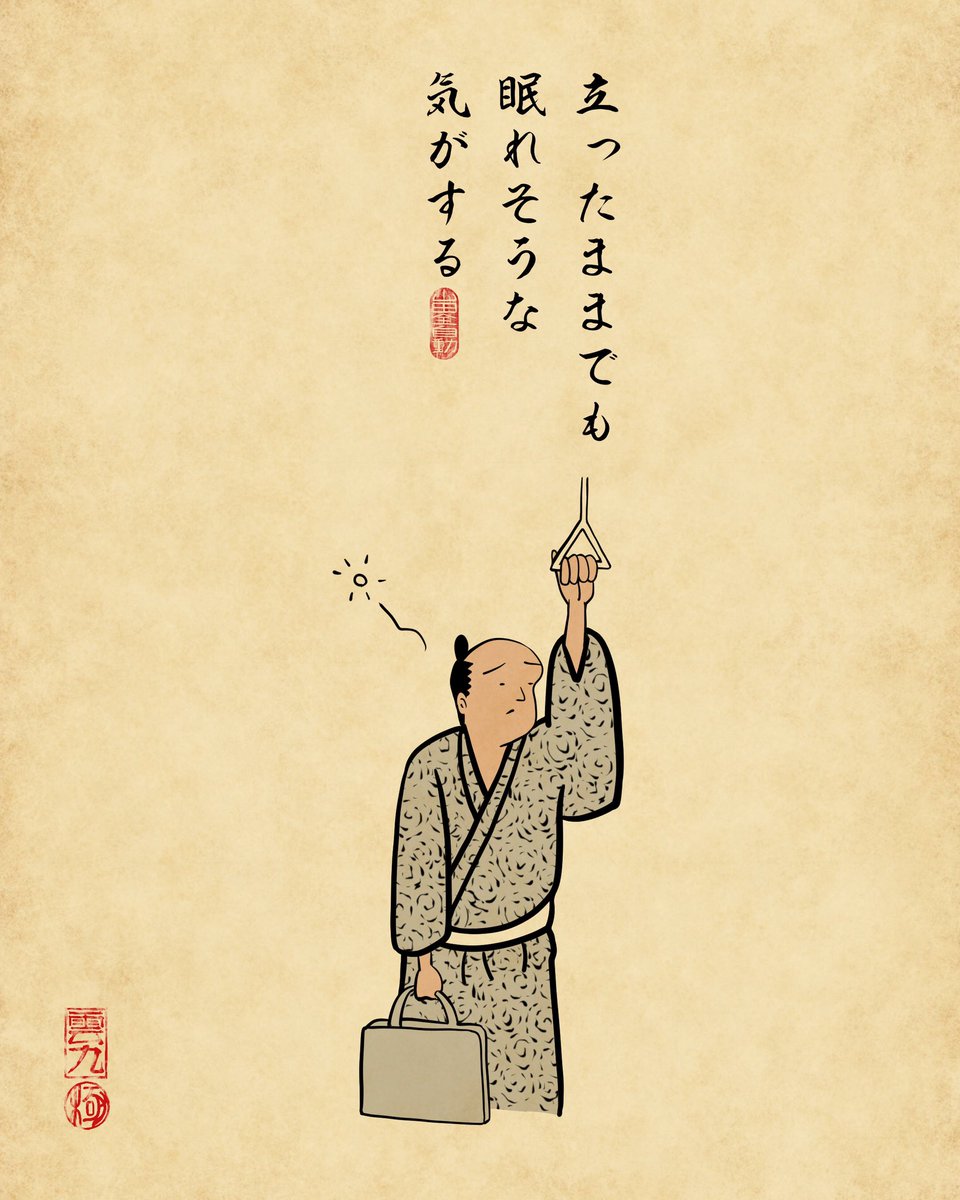 立ったままでも
眠れそうな
気がする